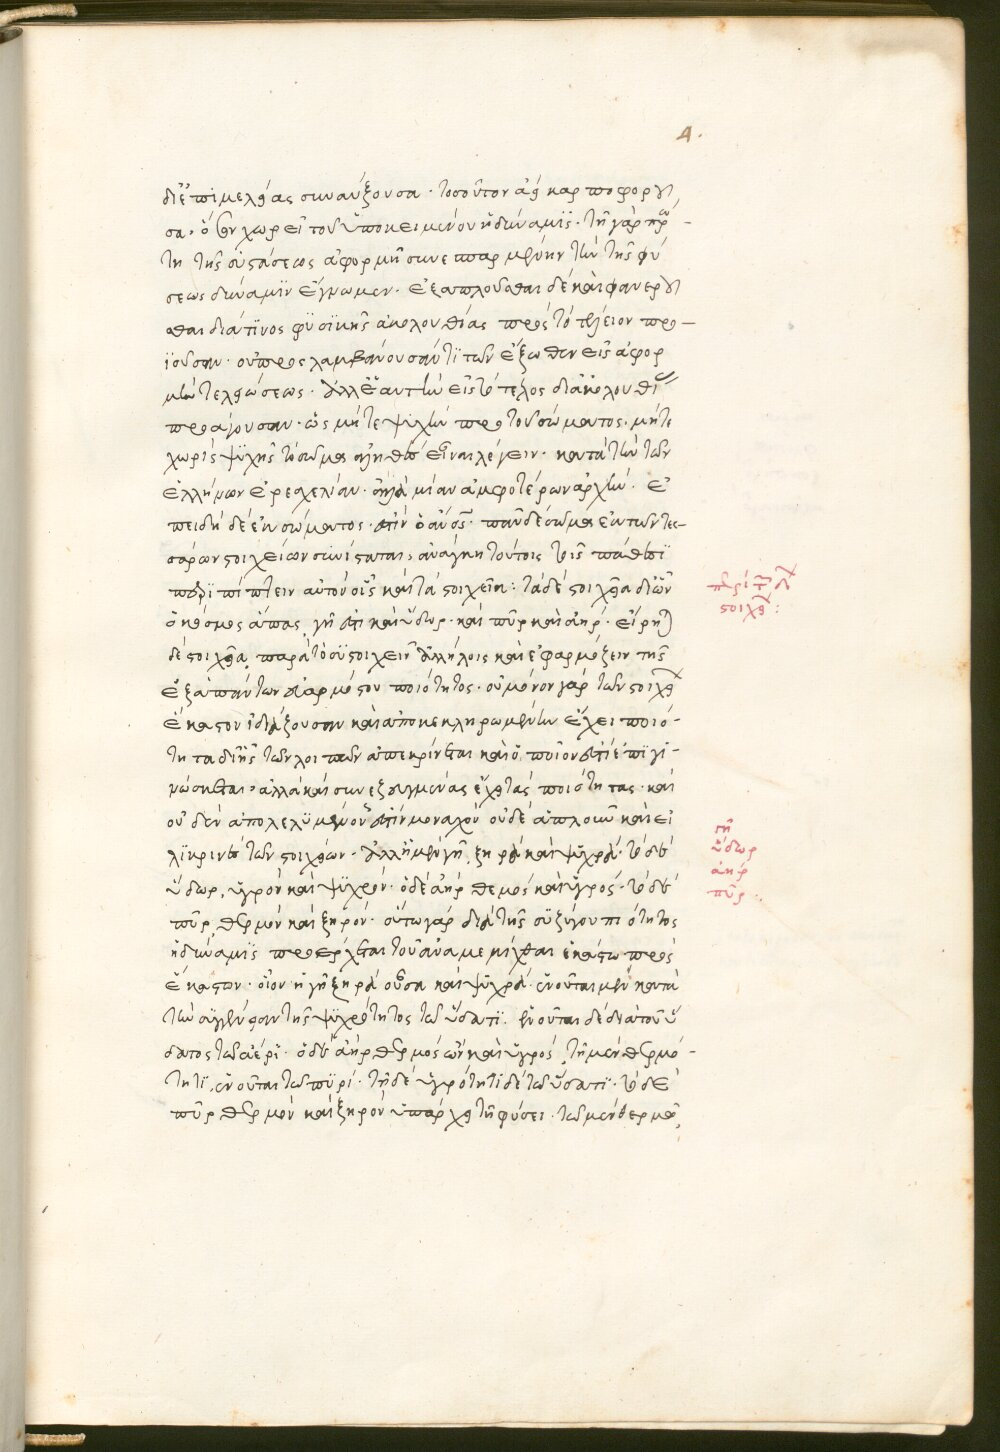 4.
δι' ἐπιμελείας συναύξουσα· τοσοῦτον ἀεὶ καρποφοροῦ
σα, ὅσον χωρεῖ τοῦ ὑποκειμένου ἡ δύναμις· τῇ γὰρ πρώ
τῃ τῆς συστάσεως ἀφορμῇ συνεσπαρμένην τὴν τῆς φύ
σεως δύναμιν ἔγνωμεν· ἐξαπλοῦσθαι δὲ καὶ φανεροῦ
σθαι διά τινος φυσικῆς ἀκολουθίας πρὸς τὸ τέλειον προ
ϊοῦσαν· οὐ προσλαμβάνουσάν τι τῶν ἔξωθεν εἰς ἀφορ
μὴν τελειώσεως· ἀλλ' ἑαυτὴν εἰς τὸ τέλος δι' ἀκολουθίας
προάγουσαν· ὡς μήτε ψυχὴν πρὸ τοῦ σώματος· μήτε
χωρὶς ψυχῆς τὸ σῶμα ἀληθὲς εἶναι λέγειν· κατὰ τὴν τῶν
ἑλλήνων ἐρεσχελίαν· ἀλλὰ μίαν ἀμφοτέρων ἀρχήν· ἐ
πειδὴ δὲ ἐν σώματος ἐστὶν ὁ ἄνος· πᾶν δὲ σῶμα ἐκ τῶν τεσ
σάρων στοιχείων συνίσταται, ἀνάγκη τούτοις τοῖς πάθεσι
περιπίπτειν αὐτὸν οἷς καὶ τὰ στοιχεῖα: τὰ δὲ στοιχεῖα δι' ὧν
ὁ κόσμος ἅπας, γῆ ἐστι καὶ ὕδωρ· καὶ πῦρ καὶ ἀήρ· εἴρηται
δὲ στοιχεῖα, παρὰ τὸ συστοιχεῖν ἀλλήλοις καὶ ἐφαρμόζειν τῆς
ἐξ ἁπάντων ἁρμόσου ποιότητος· οὐ μόνον γὰρ τῶν στοιχείων
ἕκαστον ἰδιάζουσαν καὶ ἀποκεκληρωμένην ἔχει ποιό
τητα δι' ἧς τῶν λοιπῶν ἀποκρίνεται καὶ ὁποῖον ἐστὶ ἐπιγι
νώσκεται, ἀλλὰ καὶ συνεζευγμένας ἔχει τὰς ποιότητας· καὶ
οὐδὲν ἀπολελυμένον ἐστὶν μοναχὸν οὐδὲ ἁπλοῦν καὶ εἰ
λικρινὲς τῶν στοιχείων· ἀλλ' ἡ μὲν γῆ, ξηρὰ καὶ ψυχρά· τὸ δὲ
ὕδωρ, ὑγρὸν καὶ ψυχρόν· ὁ δὲ ἀὴρ θερμὸς καὶ ὑγρός· τὸ δὲ
πῦρ, θερμὸν καὶ ξηρόν· οὕτω γὰρ διὰ τῆς συζύγου ποιότητος
ἡ δύναμις προέρχεται τοῦ ἀναμεμίχθαι ἑκάστω πρὸς
ἕκαστον· οἷον ἡ γῆ ξηρὰ οὖσα καὶ ψυχρά· ἑνοῦται μὲν κατὰ
τὴν συγγένειαν τῆς ψυχρότητος τῶ ὕδατι. ἑνοῦται δὲ διὰ τοῦ ὕ
δατος τῶ ἀέρι· ὁ δὲ ἀὴρ, θερμὸς ὢν καὶ ὑγρός, τῇ μὲν θερμό
τητι, ἑνοῦται τῶ πυρί· τῇ δὲ ὑγρότητι δὲ τῶ ὕδατι· τὸ δὲ
πῦρ, θερμὸν καὶ ξηρὸν ὑπάρχει τῇ φύσει· τῶ μὲν θερμῶ,
στοιχεί:
γῆ
ὕδωρ
ἀήρ
πῦρ: